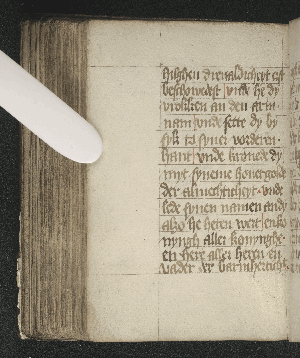 hilghen drevaldicheyt erst
beschowedest vnde he dy
vrolken an den arm
nam vnde sette dy by
syk to syner vorderen
hant vnde kronede dy
myt syneme
der almechticheyt vnde
lede synen namen an dy
also he heten wert en ko
nyngh aller konynghe
en here aller heren en
vader der barmherticheyt